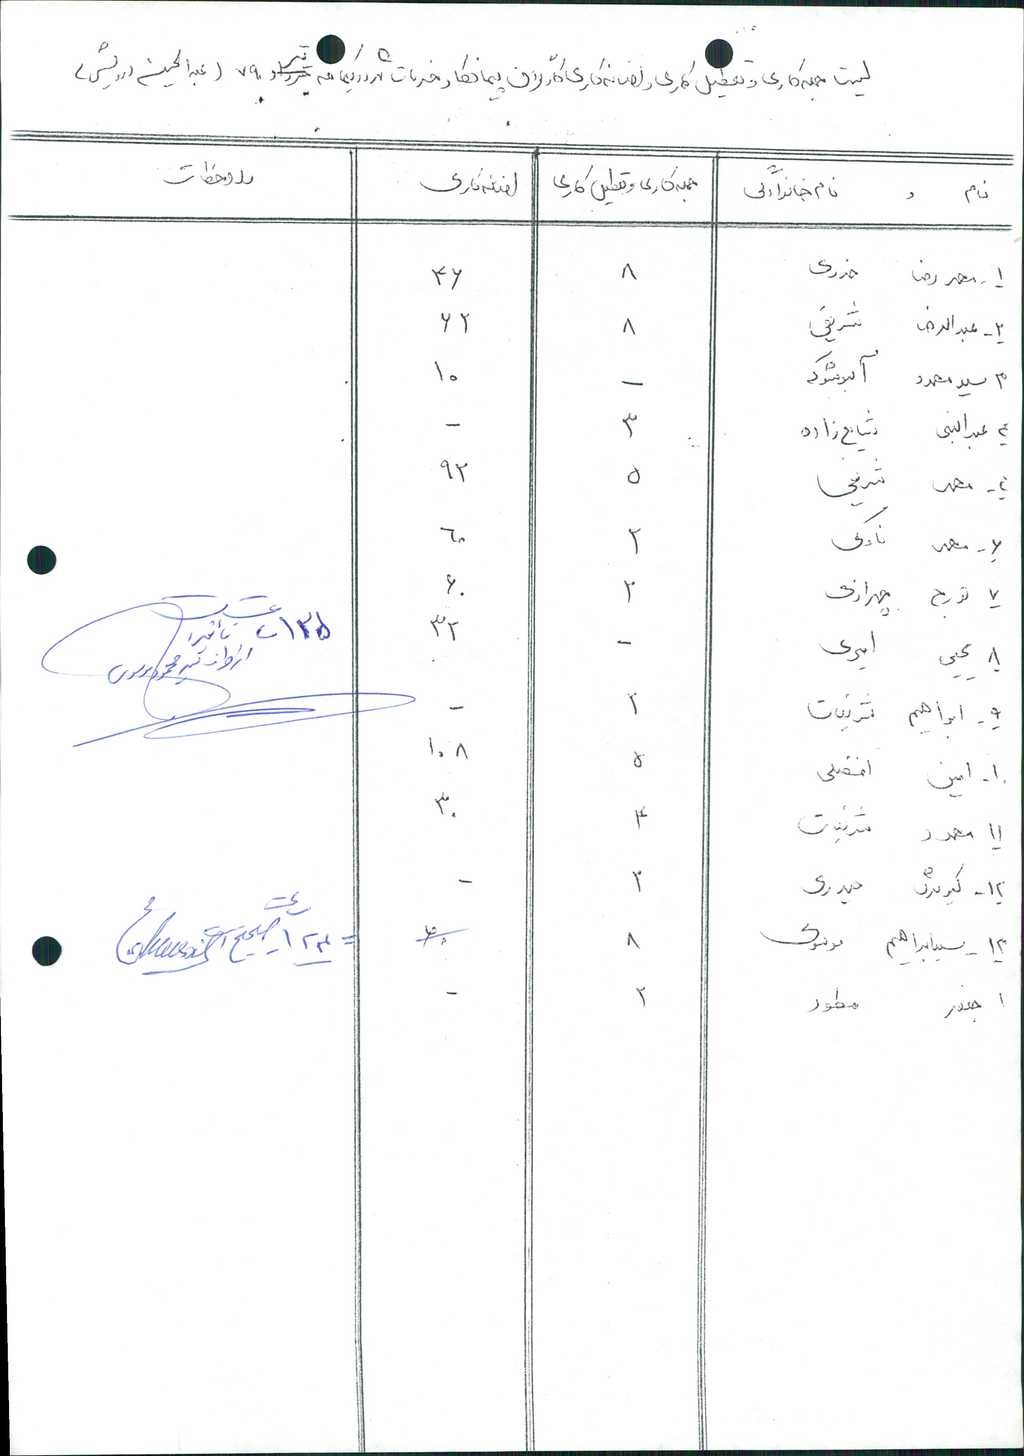 لیست جمعه کاری و تعطیل کاری و اضافه کاری کارگران پیمانکار خدمات شهری تیر ماه ۷۹ (عبدالحسین درویشی)
نام و نام خانوادگی جمعه کاری و تعطیل کاری اضافه کاری ملاحظات
۱ـ محمدرضا خدری ۸ ۴۶
۲ـ عبدالرضا شریفی ۸ ۶۲
۳ سید محمود آلبوشوکه — ۱۰
۴ عبدالنبی شایع زاده ۳ —
۵ـ محمد شریفی ۵ ۹۲
۶ـ محمد نادکی ۲ ۶۰
۷ تورج چهرازی ۲ ۶۰
۸ یحیی امیری — ۳۲
۱۲۵ ساعت
۹ـ ابراهیم شرئیات ۲ —
۱۰ـ امین افضلی ۵ ۱۰۸
۱۱ محمود شرئیات ۴ ۳۰
۱۲ـ کیومرث حیدری ۳ —
۱۳ـ سیدابراهیم موسوی ۸ ۴۰ = ۱۲۳ ساعت صحیح است
۱ جعفر مطور ۲ —